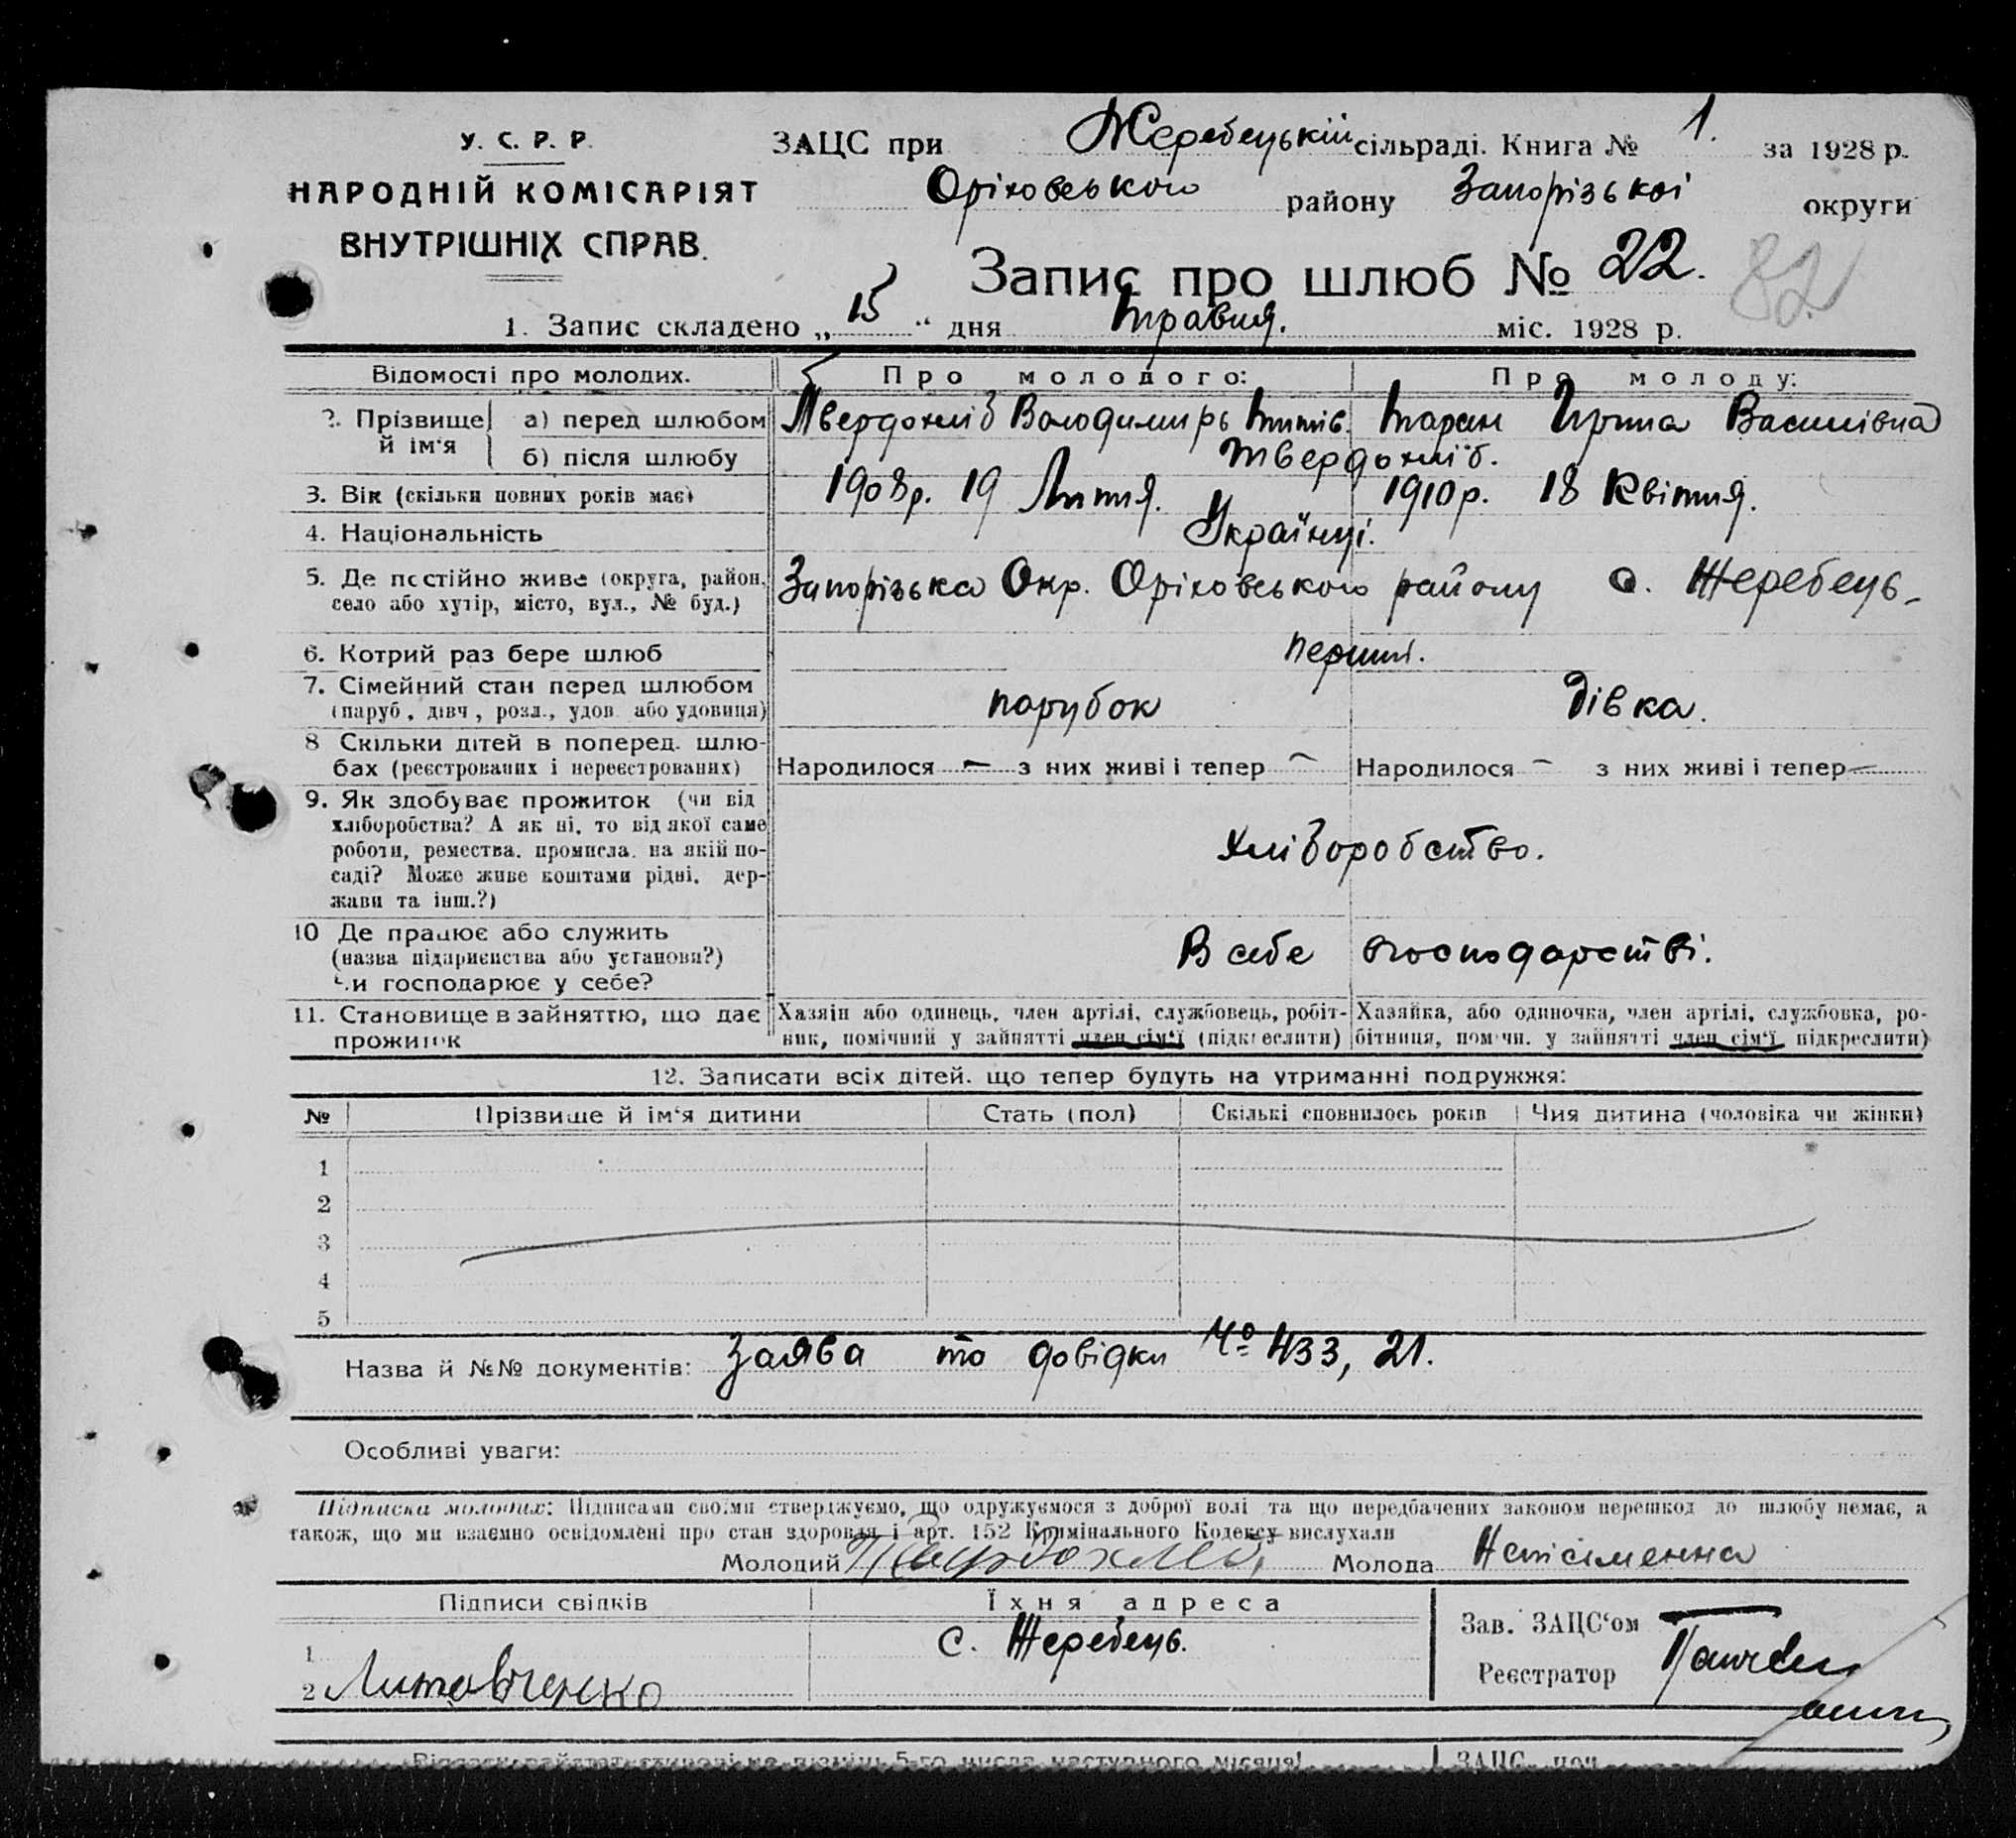 У. С. Р. Р.
НАРОДНІЙ КОМІСАРІЯТ
ВНУТРІШНІХ СПРАВ.
ЗАЦС при Жеребецькій сільраді. Книга № 1. за 1928 р.
Оріховського району Запорізької округи
Запис про шлюб № 22.
82
1. Запис складено „15“ дня травня. міс. 1928 р.
Відомості про молодих. Про молодого: Про молоду:
2. Прізвище й ім'я а) перед шлюбом Твердохліб Володимирь Титів. Таран Ирина Василівна
б) після шлюбу Твердохліб.
3. Вік (скільки повних років має) 1908р. 19 Липня. 1910р. 18 Квітня.
4. Національність Українці.
5. Де постійно живе (округа, район, Запорізька Окр. Оріховського району с. Жеребець
село або хутір, місто, вул., № буд.)
6. Котрий раз бере шлюб перший.
7. Сімейний стан перед шлюбом парубок дівка.
(паруб., дівч., розл., удов. або удовиця)
8 Скільки дітей в поперед. шлю-
бах (реєстрованих і нереєстрованих) Народилося — з них живі і тепер — Народилося — з них живі і тепер —
9. Як здобуває прожиток (чи від
хліборобства? А як ні, то від якої саме
роботи, ремества, промисла, на якій по-
саді? Може живе коштами рідні, дер-
жави та інш.?)
хліборобство.
10 Де працює або служить
(назва підприємства або установи?)
чи господарює у себе?
В себе господарстві.
11. Становище в зайняттю, що дає
прожиток
Хазяїн або одинець, член артілі, службовець, робіт-
ник, помічний у зайнятті член сім'ї (підкреслити)
Хазяйка, або одиночка, член артілі, службовка, ро-
бітниця, помічн. у зайнятті член сім'ї підкреслити)
12. Записати всіх дітей, що тепер будуть на утриманні подружжя:
№ Прізвище й ім'я дитини Стать (пол) Скількі сповнилось років Чия дитина (чоловіка чи жінки)
1
2
3
4
5
Назва й №№ документів: Заява то довідки № 433, 21.
Особливі уваги:
Підписка молодих: Підписами своїми стверджуємо, що одружуємося з доброї волі та що передбачених законом перешкод до шлюбу немає, а
також, що ми взаємно освідомлені про стан здоровля і арт. 152 Кримінального Кодексу вислухали
Молодий Твердохліб, Молода Неписменна
Підписи свідків Їхня адреса
1 с. Жеребець.
2 Литовченко
Зав. ЗАЦС'ом
Реєстратор